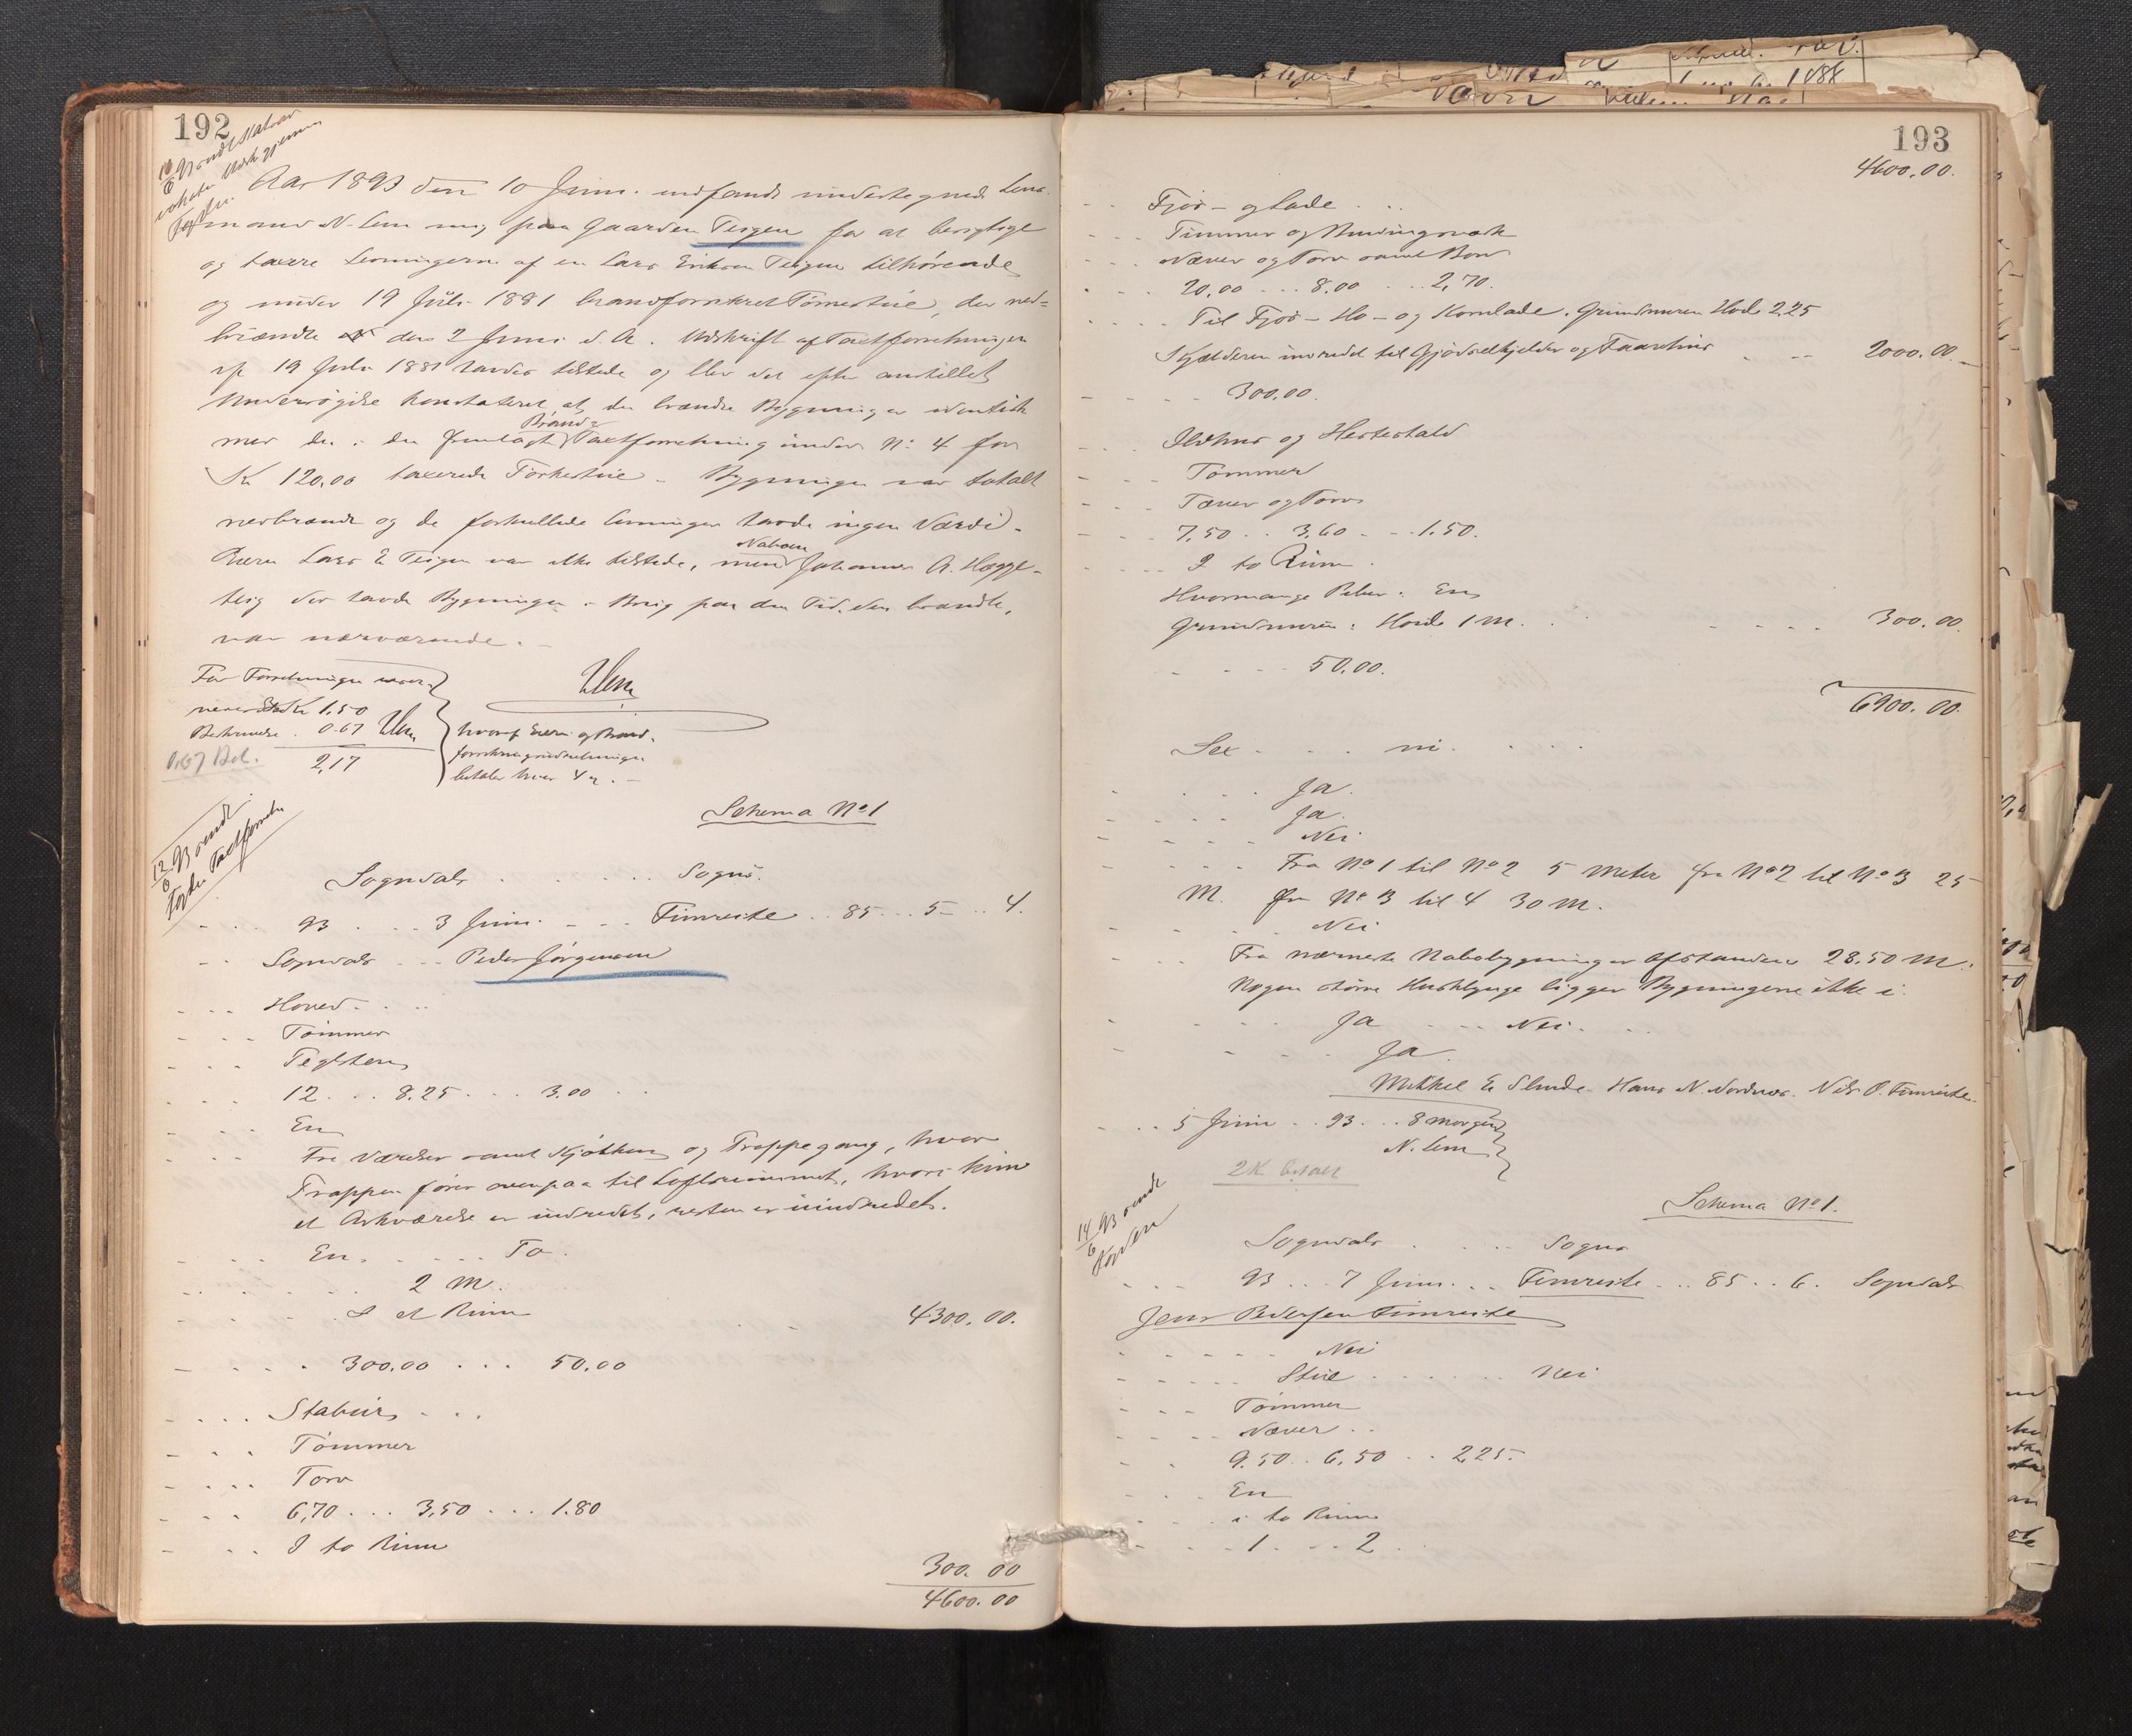 192
Aar 1893 den 10 Juni indfandt undertegnede Lens-
mand N. Lem mig paa Gaarden Teigen for at besigtige
og taxere Levningerne af en Lars Eriksen Teigen tilhørende
og under 19 Juli 1881 brandforsikret Tørrestue, der ned-
brændte den 2 Juni d. A. Udskrift af Taxtforretningen
af 19 Juli 1881 havdes tilstede og blev det efter anstillet
Undersøgelse konstateret, at den brændte Bygning er identisk
med den i den fremlagte Brand-Taxtforretning under No 4 for
Kr 120,00 taxerede Tørkestue. Bygningen var totalt
nedbrændt og de forkullede Levninger havde ingen Værdi.
Eieren Lars E Teigen var ikke tilstede, men Naboen Johannes A.
der havde Bygningen i Brug paa den Tid, den brændte,
var nærværende.
For Forretningen
Kr 1.50
0.67 Lem
2,17
hvoraf Eieren og Brand-
betaler hver ½.
Lem
0.67 Bet.
Schema No 1
Sogndals . . . . . Sogns.
93 . . . 3 Juni . . . Fimreite . . 85 . . . 5 . . 4.
Sogndals . . . Peder Jørgensen
Hoved . . .
Tømmer
Teglsten
12 . . . 8.25 . . . 3.00 . .
En
Tre Værelser samt Kjøkken og Trappegang, hvor
Trappen fører ovenpaa til Loftsrummet, hvori kun
et Arkværelse er indredet, resten er uindredet.
En . . . . To.
2 M.
I et Rum
4300.00.
300.00 . . . 50.00
Stabur . . .
Tømmer
Torv
6,70 . . . 3,50 . . . 1.80
I to Rum
300.00
4600.00
193
4600.00.
Fjøs- og Lade . . .
Tømmer og Bindingsværk
Næver og Torv samt Bord
20,00 . . . 8.00 . . . 2,70.
Til Fjøs- Hø- og Kornlade. Grundmuren Høide 2,25
Kjælderen indredet til Gjødselkjelder og Faarehus . . . 2000.00.
300.00.
Ildhus og Hestestald
Tømmer
Næver og Torv
7,50 . . 3,60 . . . 1.50.
I to Rum.
Hvormange Piber: En
Grundmuren: Høide 1 M. . . . . . 300.00.
50.00.
6900.00.
Sex . . . . ni . . . .
Ja.
Ja.
Nei
Fra No 1 til No 2 5 Meter fra No 2 til No 3 25
M. fra No 3 til 4 30 M.
Nei
Fra nærmeste Nabobygning er Afstanden 28.50 M.
Nogen større Husklynge ligger Bygningerne ikke i.
Ja . . . Nei. . .
Ja.
Mikkel E Slinde Hans N. Nordnes. Nils O. Fimreite.
5 Juni . . 93 . . . 8 morgen
N. Lem
2 Kr betalt
Schema No 1.
Sogndals . . . . Sogns
93 . . . 7 Juni . . . Fimreite . . . 85 . . 6. Sogndals
Jens Pedersen Fimreite
Nei
Stue . . . . . . Nei
Tømmer
Næver . .
9.50 . . 6,50 . . . 2,25.
En
i to Rum
1 . . . . 2 .